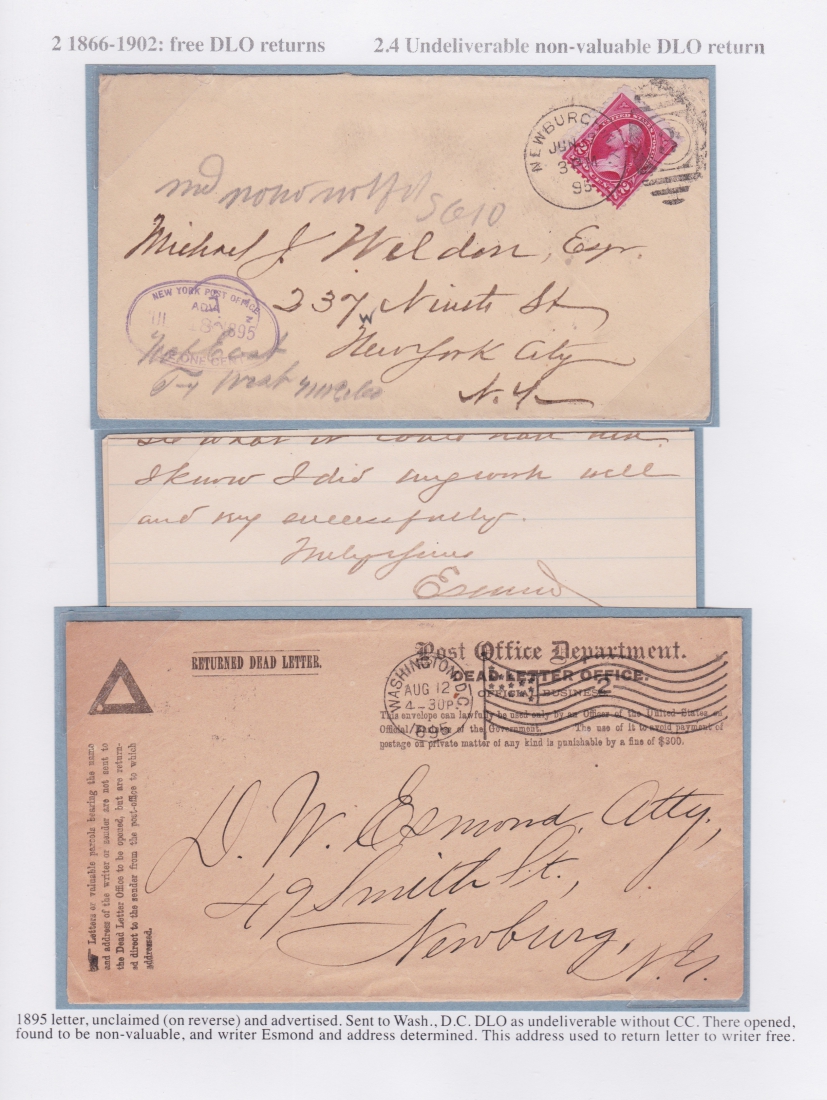 2 1866-1902: free DLO returns 2.4 Undeliverable non-valuable DLO return
NEWBURG
JUN
3
95
UNITED STATES POSTAGE
5610
Michael J. Weldon, Esqr.
237 Ninth St
W
New York City
N.Y.
NEW YORK POST OFFICE
1895
ONE CENT
West
what it could
I know I did my work well
and very successfully.
Truly yours
Esmond
RETURNED DEAD LETTER.
Post Office Department.
DEAD LETTER OFFICE.
OFFICIAL BUSINESS.
This envelope can lawfully be used only by an Officer of the United States on
Official Business of the Government. The use of it to avoid payment of
postage on private matter of any kind is punishable by a fine of $300.
WASHINGTON, D.C.
AUG 12
4-30P
1895
2
Letters or valuable parcels bearing the name
and address of the writer or sender are not sent to
the Dead Letter Office to be opened, but are return-
ed direct to the sender from the post-office to which
addressed.
D. W. Esmond, Atty,
49 Smith St.,
Newburg,
N.Y.
1895 letter, unclaimed (on reverse) and advertised. Sent to Wash., D.C. DLO as undeliverable without CC. There opened,
found to be non-valuable, and writer Esmond and address determined. This address used to return letter to writer free.